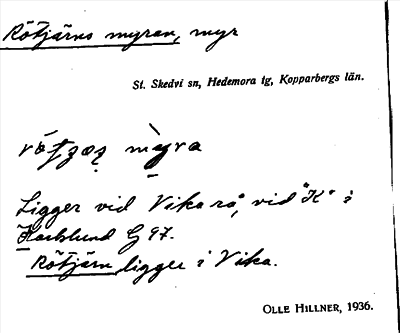 Rötjärns myran, myr
St. Skedvi sn, Hedemora tg, Kopparbergs län.
myra
Ligger vid Vika rå, vid "K" i
Karlslund G 97.
Rötjärn ligger i Vika.
OLLE HILLNER, 1936.